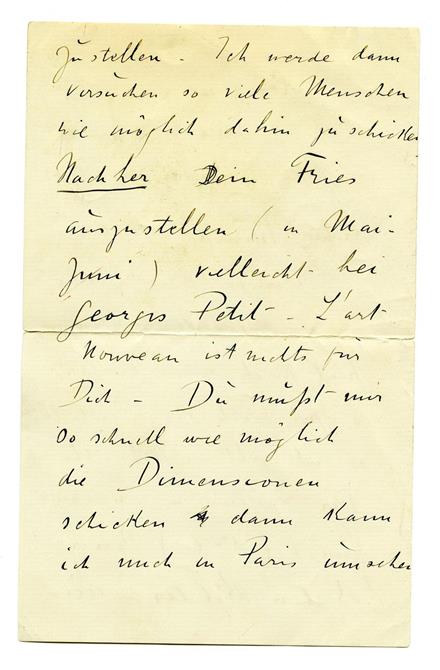 zustellen - Ich werde dann
versuchen so viele Menschen
wie möglich dahin zu schicken
Nachher Dein Fries
auszustellen (in Mai-
Juni) vielleicht bei
Georges Petit - L'art
Nouveau ist nichts für
Dich - Du mußt mir
so schnell wie möglich
die Dimensionen
schicken dann kann
ich mich in Paris umsehen